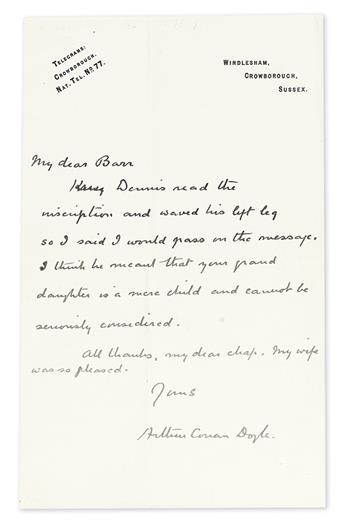 TELEGRAMS:
CROWBOROUGH.
NAT. TEL. NO. 77.
WINDLESHAM,
CROWBOROUGH,
SUSSEX.
My dear Barr
Dennis read the
inscription and waved his left leg
so I said I would pass on the message.
I think he meant that your grand
daughter is a mere child and cannot be
seriously considered.
All thanks, my dear chap. My wife
was so pleased.
Yours
Arthur Conan Doyle.